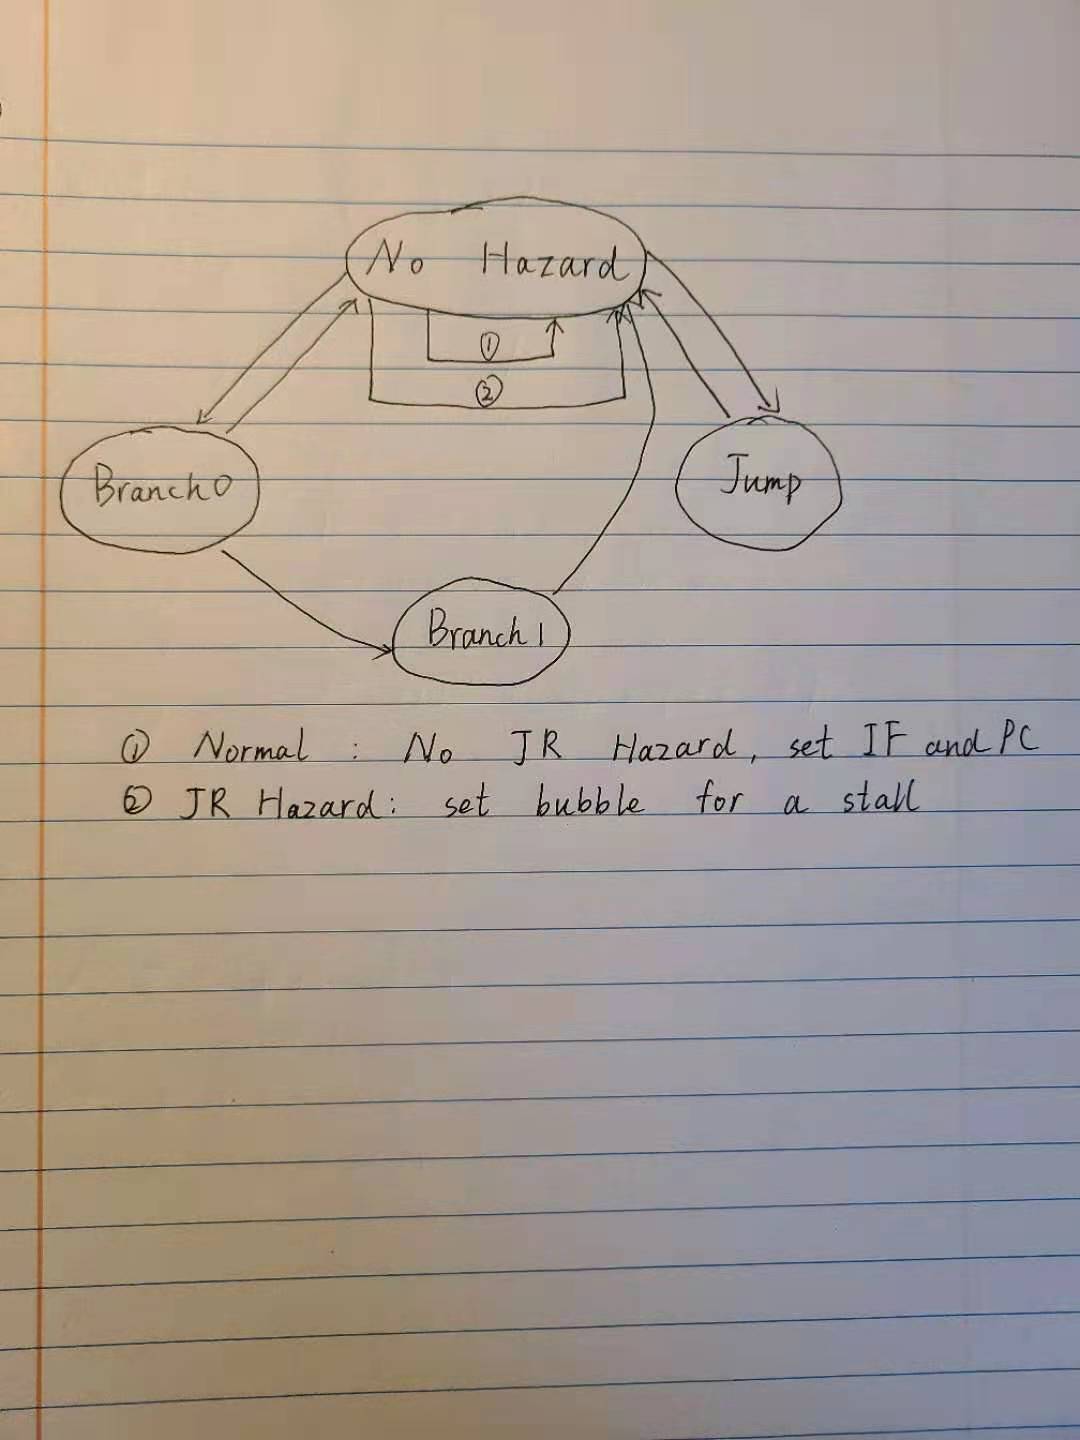 No Hazard
①
②
Branch0
Jump
Branch1
① Normal : No JR Hazard, set IF and PC
② JR Hazard: set bubble for a stall